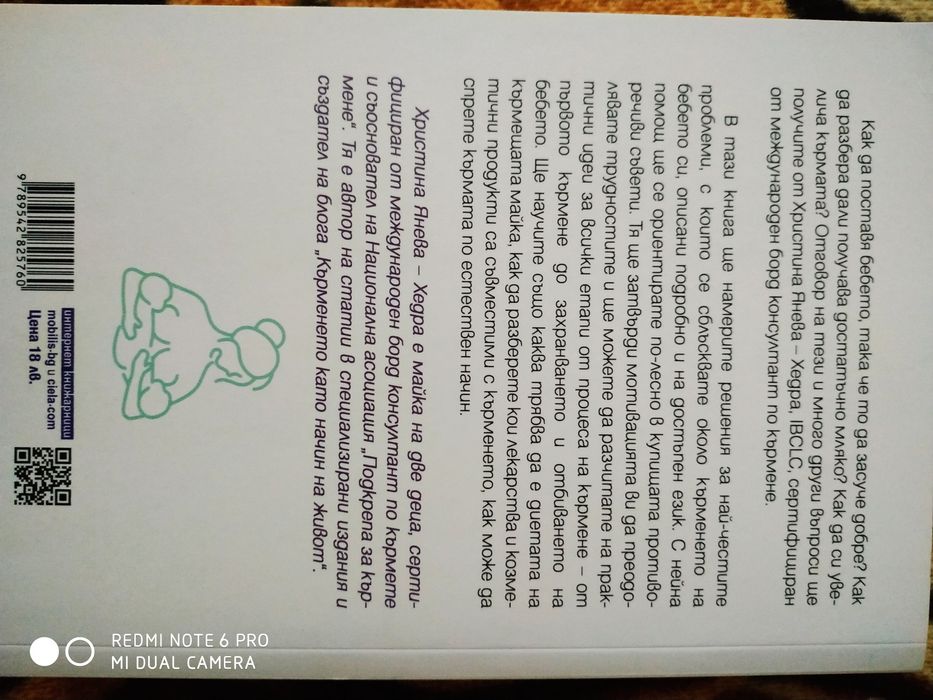 Как да поставя бебето, така че то да засуче добре? Как
да разбера дали получава достатъчно мляко? Как да си уве-
лича кърмата? Отговор на тези и много други въпроси ще
получите от Христина Янева – Хедра, IBCLC, сертифициран
от международен борд консултант по кърмене.
В тази книга ще намерите решения за най-честите
проблеми, с които се сблъсквате около кърменето на
бебето си, описани подробно и на достъпен език. С нейна
помощ ще се ориентирате по-лесно в купищата противо-
речиви съвети. Тя ще затвърди мотивацията ви да преодо-
лявате трудностите и ще можете да разчитате на прак-
тични идеи за всички етапи от процеса на кърмене – от
първото кърмене до захранването и отбиването на
бебето. Ще научите също каква трябва да е диетата на
кърмещата майка, как да разберете кои лекарства и козме-
тични продукти са съвместими с кърменето, как може да
спрете кърмата по естествен начин.
Христина Янева – Хедра е майка на две деца, серти-
фициран от международен борд консултант по кърмете
и съосновател на Национална асоциация „Подкрепа за кър-
мене“. Тя е автор на статии в специализирани издания и
създател на блога „Кърменето като начин на живот“.
9 789542 825760
интернет книжарници
mobilis.bg и ciela.com
Цена 18 лв.
REDMI NOTE 6 PRO
MI DUAL CAMERA